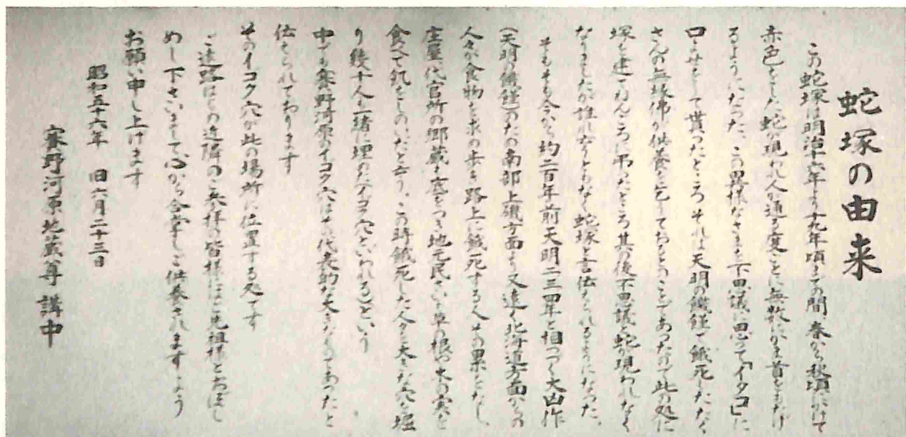 蛇塚の由来
この蛇塚は明治十六年より十九年頃までの間、春から秋頃にかけて
赤色をした蛇現われ人が通る度ごとに無数にかま首をもたげ
るようになった、この異様なさまを不思議に思って「イタコ」に
口よせをして貰ったところそれは天明飢饉で餓死したたく
さんの無縁佛が供養を乞しておるとのことであったので此の処に
塚を建てねんごろに弔ったところ其の後不思議と蛇が現われなく
なりましたが誰れ云うともなく蛇塚と言伝えられるようになった。
そもそも今から約二百年前天明二三四年と相つぐ大凶作
(天明飢饉)のため南部上磯方面より又遠く北海道方面からの
人々が食物を求め歩き路上に餓死する人その累をなし
庄屋代官所の郷蔵も底をつき地元民さい草の根や木の実を
食べて飢をしのいだと云う、この時餓死した人々を大きな穴を堀
り幾十人も一緒に埋め(イコク穴といわれる)という
中でも賽野河原のイコク穴はその代表的な大きなものであったと
伝えられております
そのイコク穴が此の場所に位置する処です
ご遠路はじめ近隣のご参拝の皆様にはご先祖様とおぼし
めし下さいまして心から合掌しご供養されますよう
お願い申し上げます
昭和五十六年 旧六月二十三日
賽野河原地蔵尊 講中